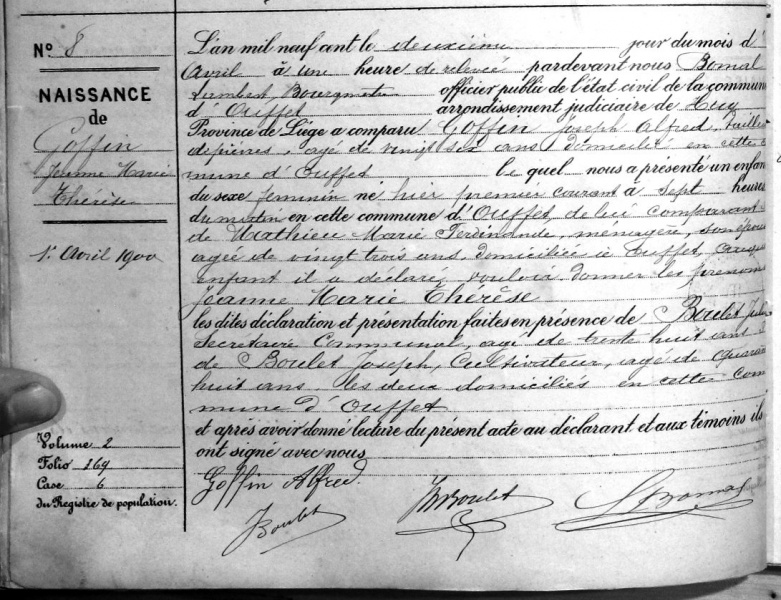 N° 8
NAISSANCE
de
Goffin
Jeanne Marie
Thérèse
1r Avril 1900
Volume 2
Folio 169
Case 6
du Registre de population.
L'an mil neuf cent le deuxième jour du mois d'
Avril à une heure de relevée pardevant nous Bomal
Lambert Bourgmestre officier public de l'état civil de la commun
d'Ouffet arrondissement judiciaire de Huy
Province de Liége a comparu Goffin Joseph Alfred, tailleu
de pierres, agé de vingt six ans domicilié en cette com
mune d'Ouffet le quel nous a présenté un enfan
du sexe feminin né hier premier courant à sept heures
du matin en cette commune d'Ouffet, de lui comparant
de Mathieu Marie Ferdinande, menagère, son épou
agée de vingt trois ans domiciliée à Ouffet, auque
enfant il a déclaré vouloir donner les prenom
Jeanne Marie Thérèse
les dites déclaration et présentation faites en présence de Boulet Jule
Secrétaire Communal, agé de trente huit ans
de Boulet Joseph, Cultivateur, agé de quaran
huit ans les deux domiciliés en cette com
mune d'Ouffet
et après avoir donné lecture du présent acte au déclarant et aux témoins ils
ont signé avec nous
Goffin Alfred
JBoulet
Boulet
LBomal